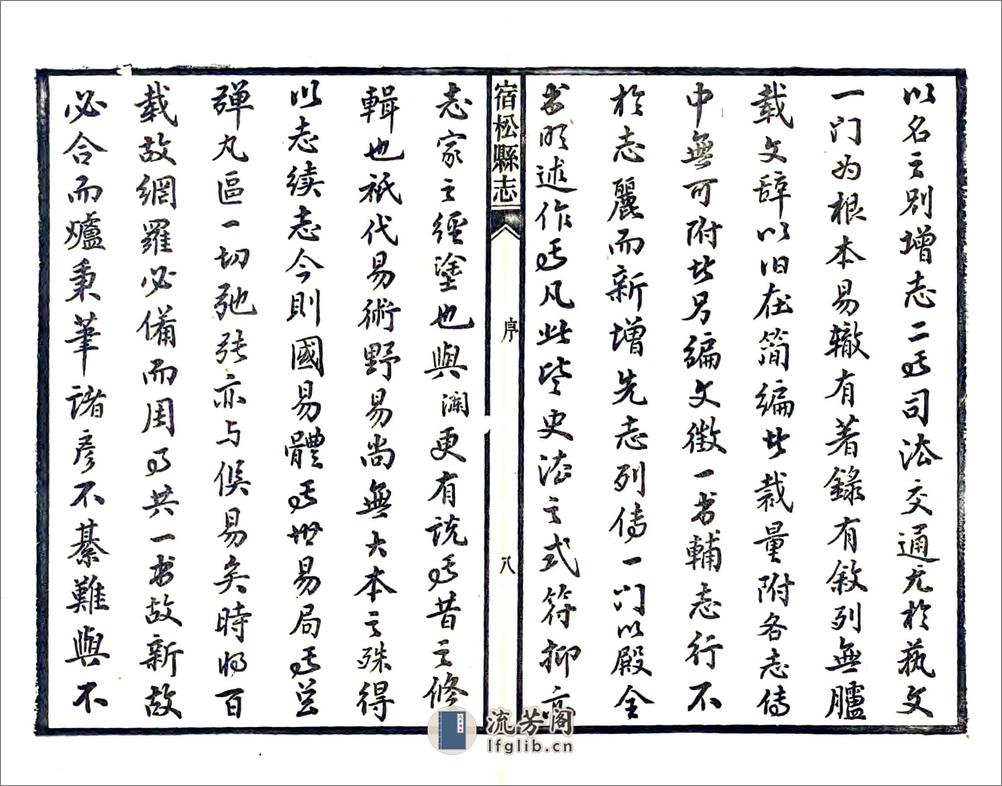 以名之别增志二焉司法交通尤於藝文
一门为根本易辙有著錄有敘列無臚
载文辞以旧在简编此裁量附各志傳
中無可附此另编文徵一书輔志行不
於志麗而新增先志列傳一门以殿全
书明述作焉凡此皆史法之式符抑亦
宿松縣志
序
八
志家之經塗也與瀾更有说焉昔之修
輯也祇代易術野易尚無大本之殊得
以志续志今则國易體焉世易局焉岂
弹丸區一切弛张亦与俟易矣時为百
载故網羅必備而周为共一书故新故
必合而爐秉筆诸彦不綦難與不
流芳阁
lfglib.cn